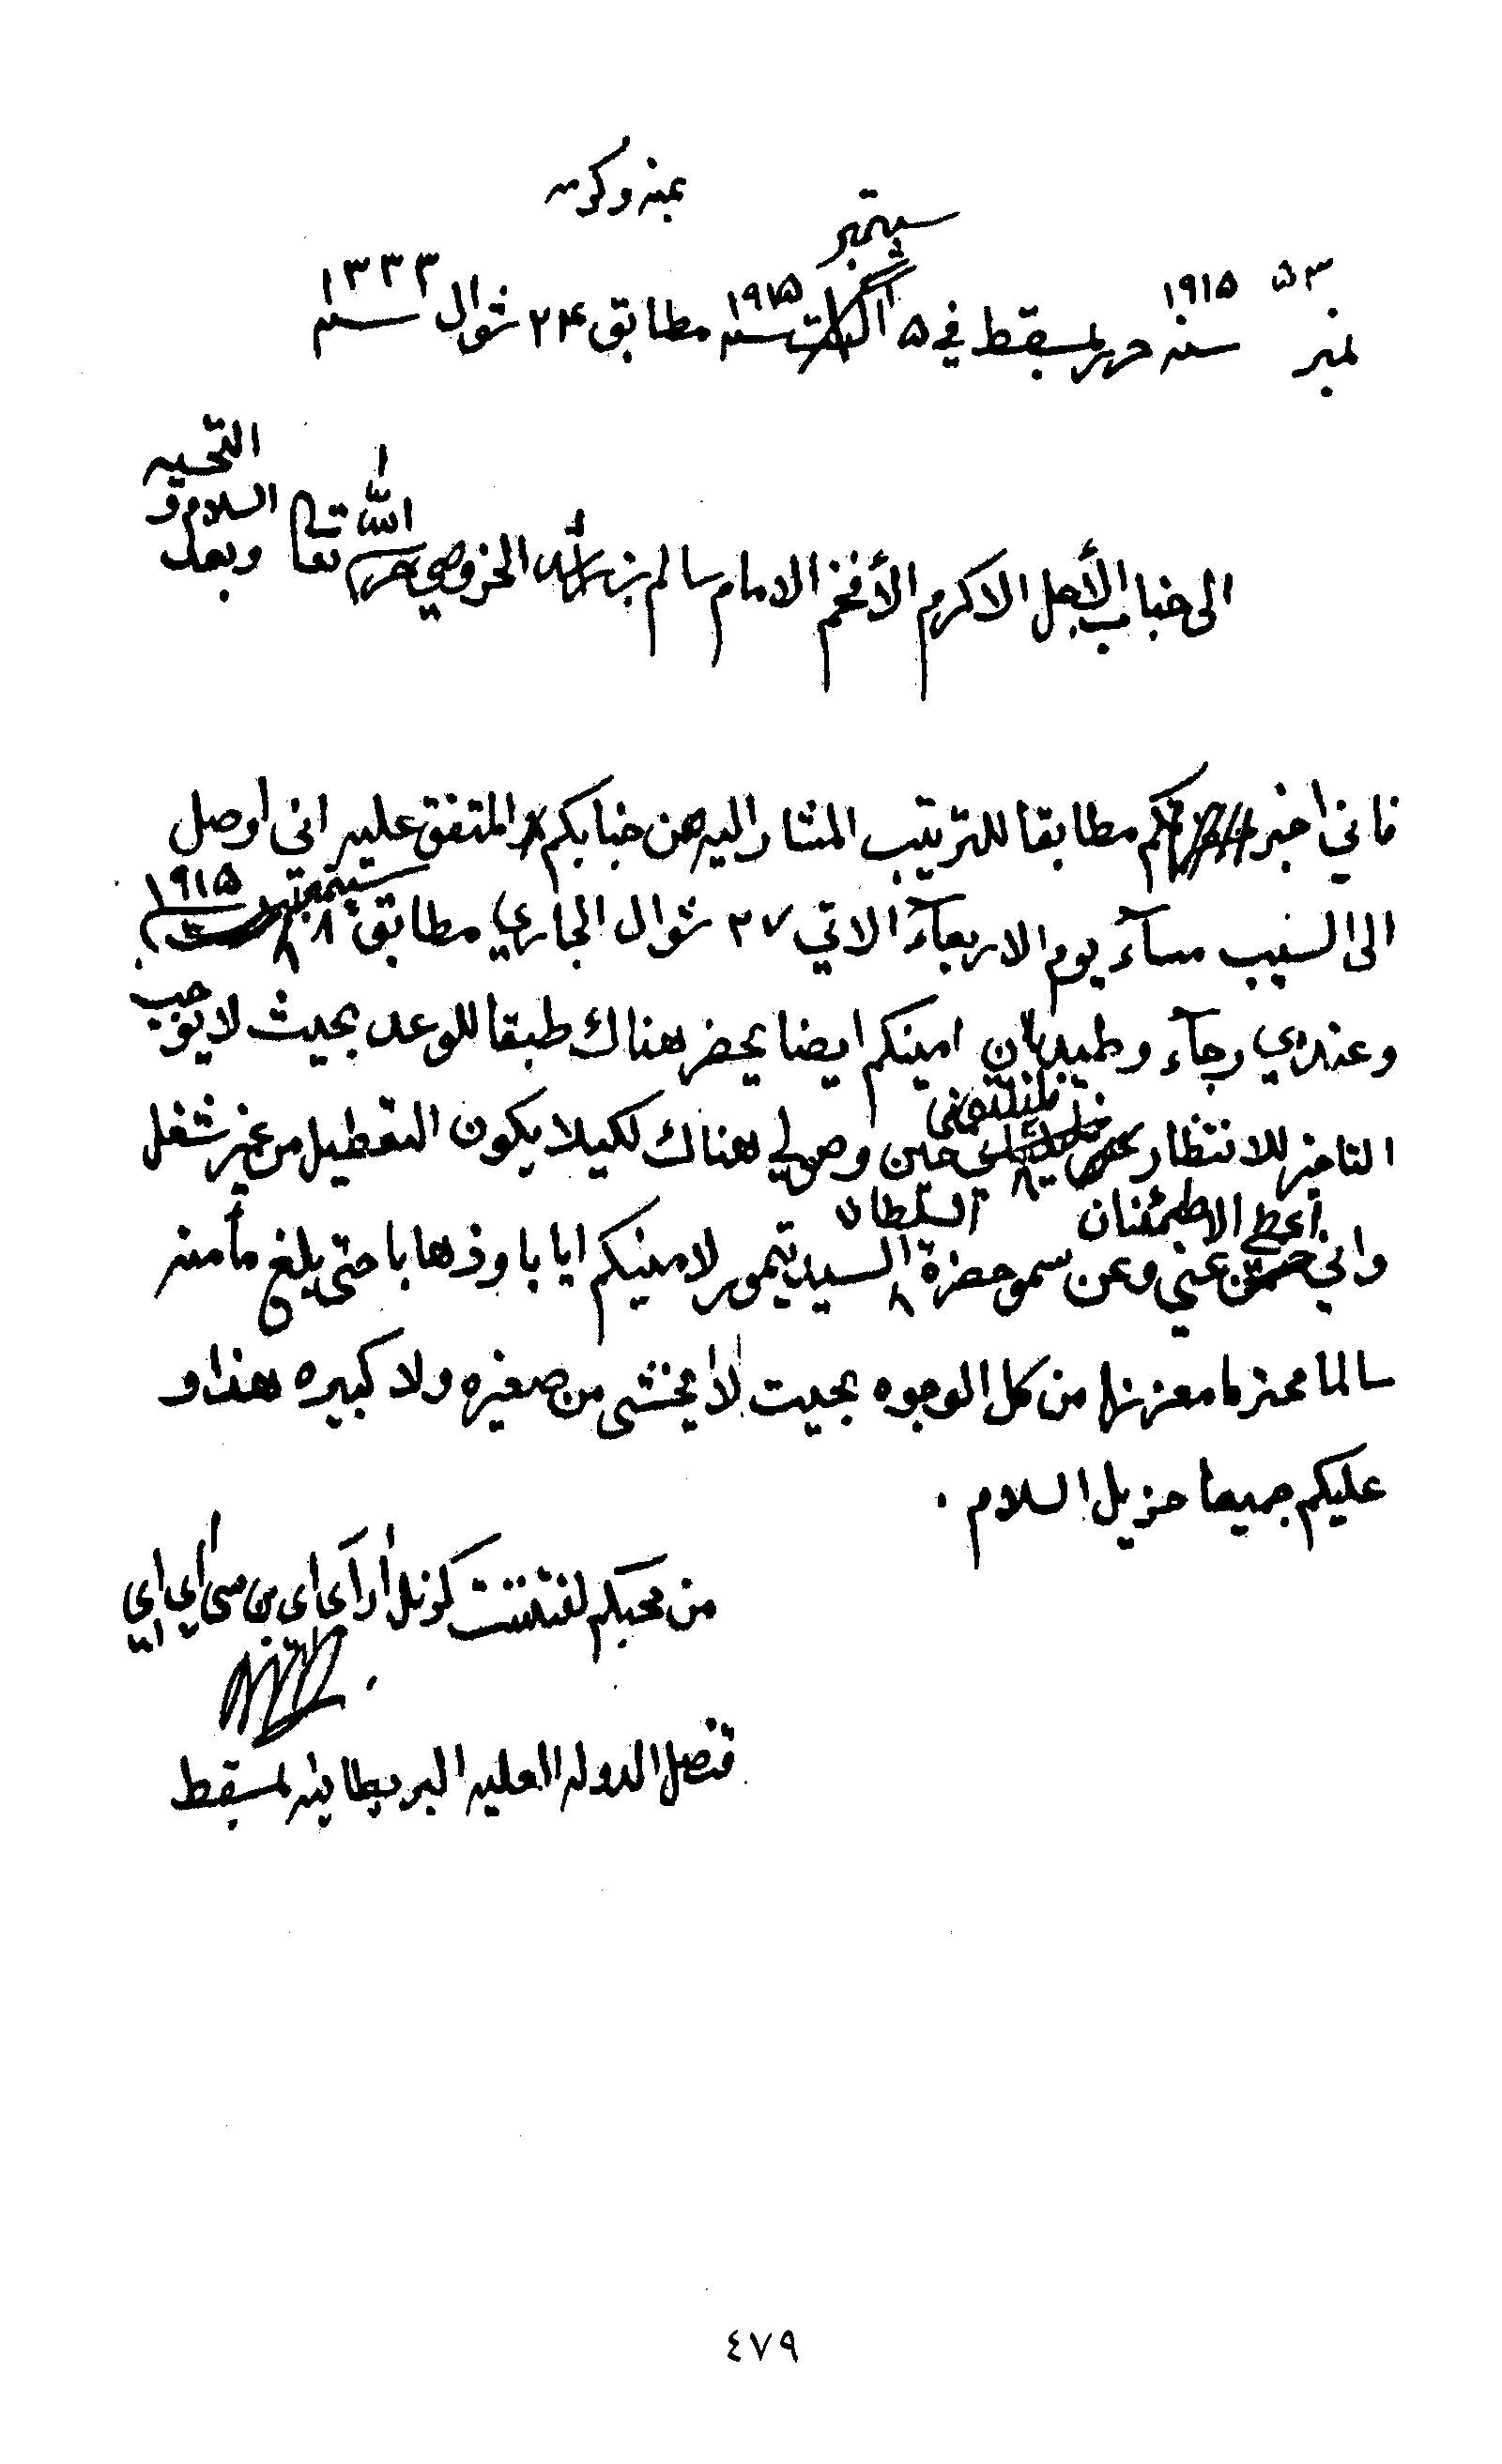 بمنه وكرمه
سبتمبر
نمبر ٥٣ سنه ١٩١٥ حرر بمسقط في ٥ اگست سنه ١٩١٥ مطابق ٢٤ شوال سنه ١٣٣٣
الى جناب الأجل الاكرم الأفخم الامام سالم بن راشد الخروصي حرسه الله تعالى
السلام و التحيه وبعد
فاني اخبركم مطابقا للترتيب المشار اليه من جنابكم المتفق عليه اني أوصل
الى السيب مسآء يوم الاربعآء الاتي ٢٧ شوال الجاري مطابق ٨ سبتمبر ١٩١٥
وعندي رجآء وطيد بان امينكم ايضا يحضر هناك طبقا للوعد بحيث لا يوجب
التاخير للانتظار حين وصولي هناك لكيلا يكون التعطيل من غير شغل
واني أعطي الاطمئنان عني وعن سمو حضرة السلطان السيد تيمور لامينكم ايابا وذهابا حتى يبلغ مأمنه
سالما محترما معززا من كل الوجوه بحيث لا يخشى من صغيره ولا كبيره هذا و
عليكم جميعا جزيل السلام .
من محبكم لفتننت كرنل ار آى اى بن سى أي إي
قنصل الدوله العليه البريطانيه بمسقط
٤٧٩